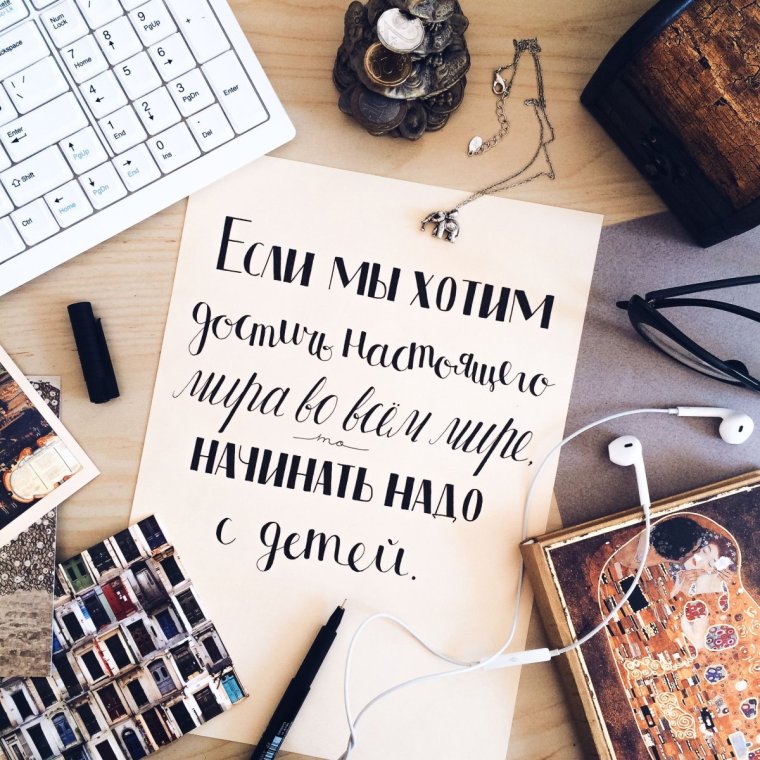 Backspace
Enter
Shift
Ctrl
Num Lock
7 Home
8
9 PgUp
4
5
6
1 End
2
3 PgDn
0 Ins
. Del
+
Enter
PgUp
Home
PgDn
End
Если мы хотим
достичь настоящего
мира во всём мире,
то
начинать надо
с детей.